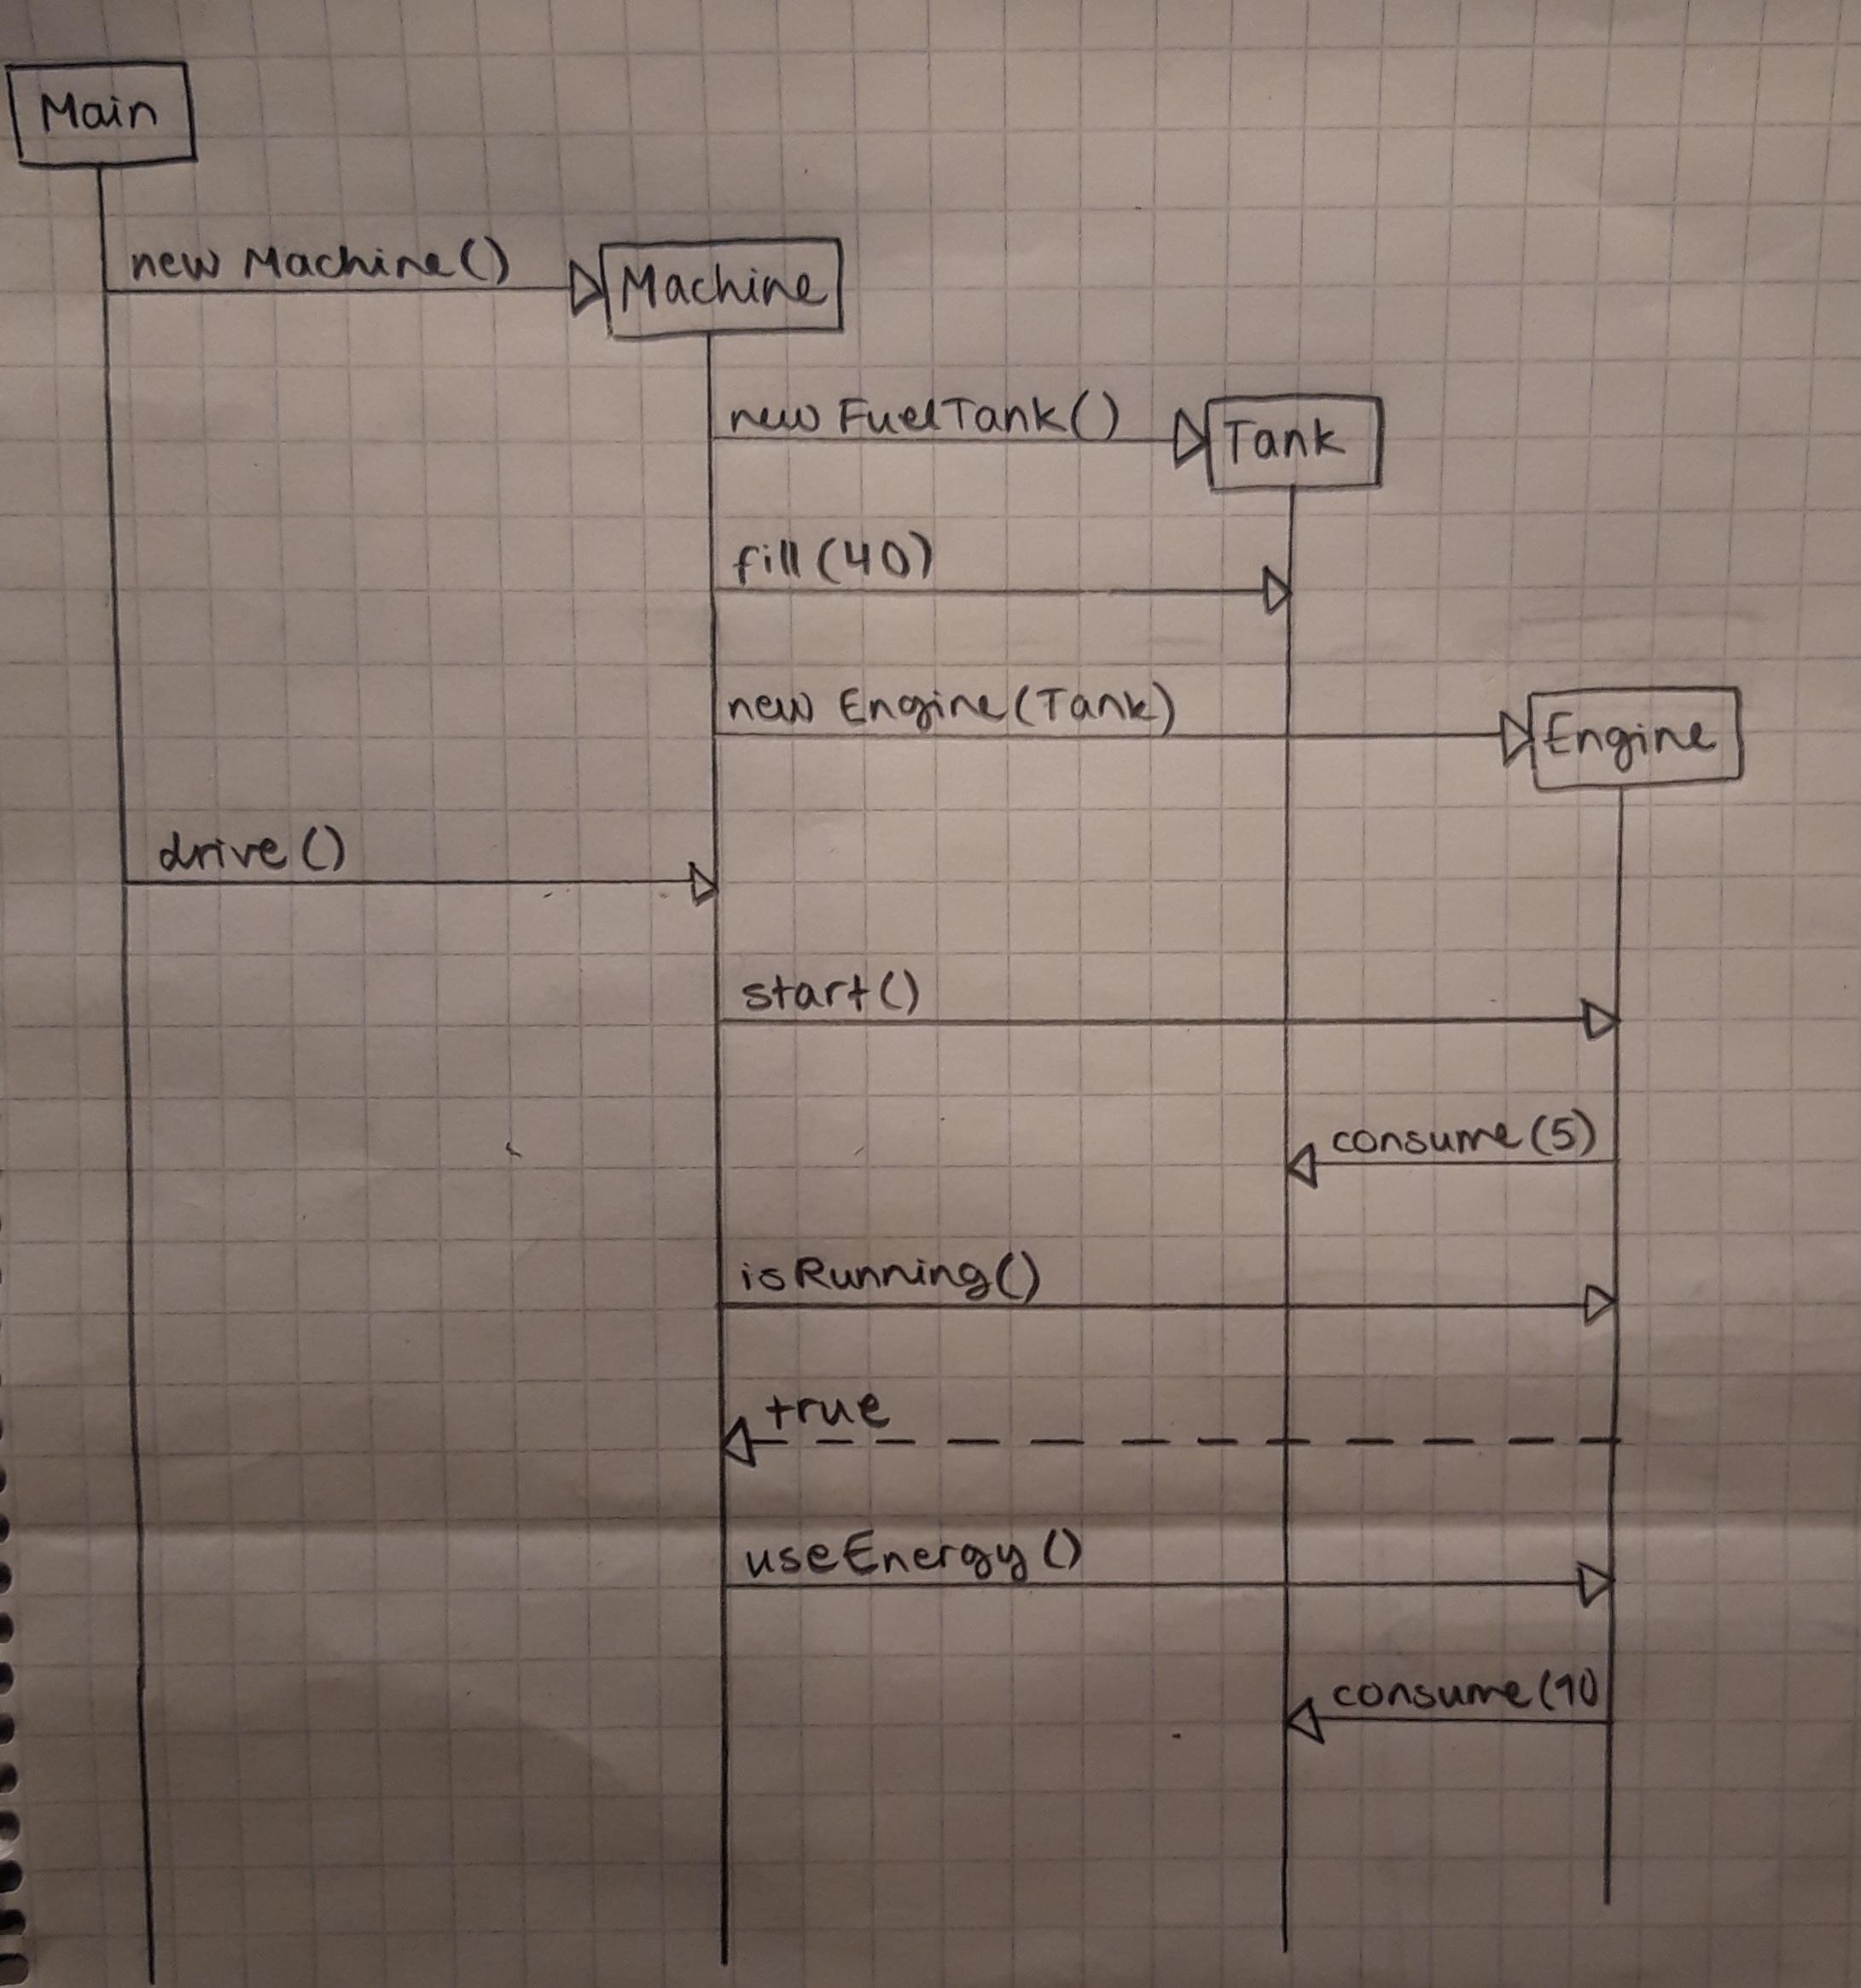 Main
new Machine()
Machine
new FuelTank()
Tank
fill(40)
new Engine(Tank)
Engine
drive()
start()
consume(5)
isRunning()
true
useEnergy()
consume(10